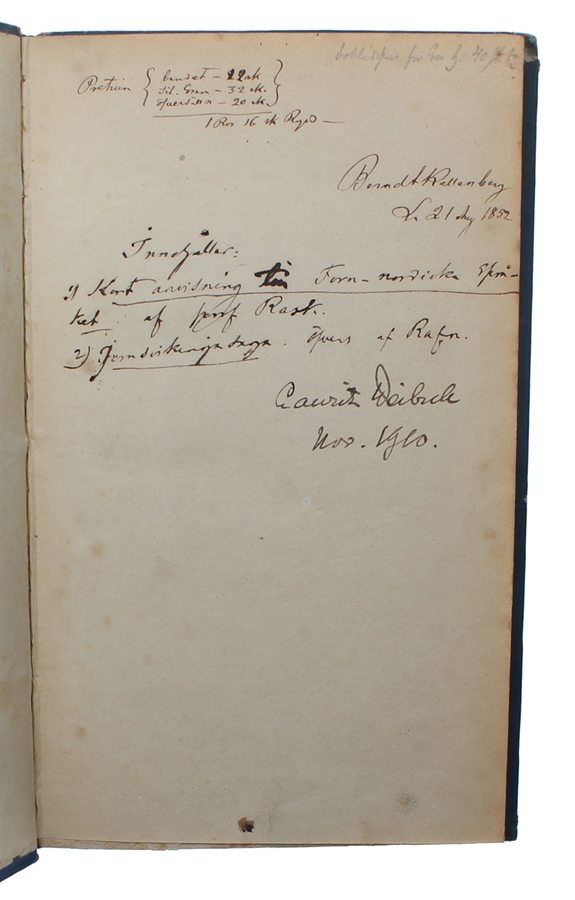 Pretium { bandet – 22 sk
Isl. Gram – 32 sk.
öfversättn – 20 sk. }
1 Rdr 16 sk Rgds –
Berndt Kallenberg
L. 21 Aug 1852
Innehåller:
1) Kort anvisning till Forn-nordiska Språ-
ket af prof Rask.
2) Jomsvikingasaga. öfvers af Rafn.
Lauritz Weibull
Nov. 1910.